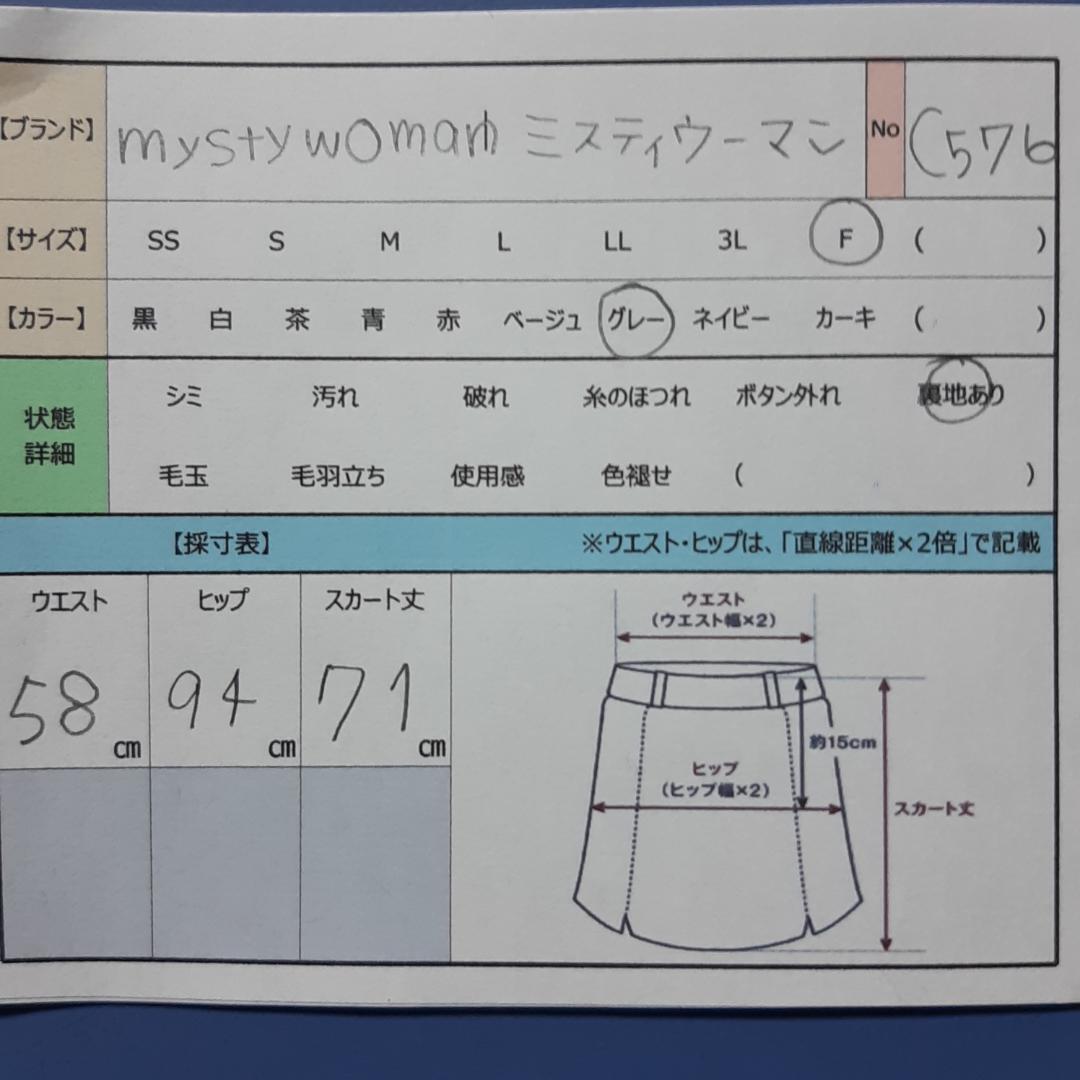 【ブランド】 mysty woman ミスティウーマン No C576
【サイズ】 SS S M L LL 3L F ( )
【カラー】 黒 白 茶 青 赤 ベージュ グレー ネイビー カーキ ( )
状態
詳細
シミ 汚れ 破れ 糸のほつれ ボタン外れ 裏地あり
毛玉 毛羽立ち 使用感 色褪せ ( )
【採寸表】 ※ウエスト・ヒップは、「直線距離×2倍」で記載
ウエスト ヒップ スカート丈
58 cm 94 cm 71 cm
ウエスト
(ウエスト幅×2)
約15cm
ヒップ
(ヒップ幅×2)
スカート丈